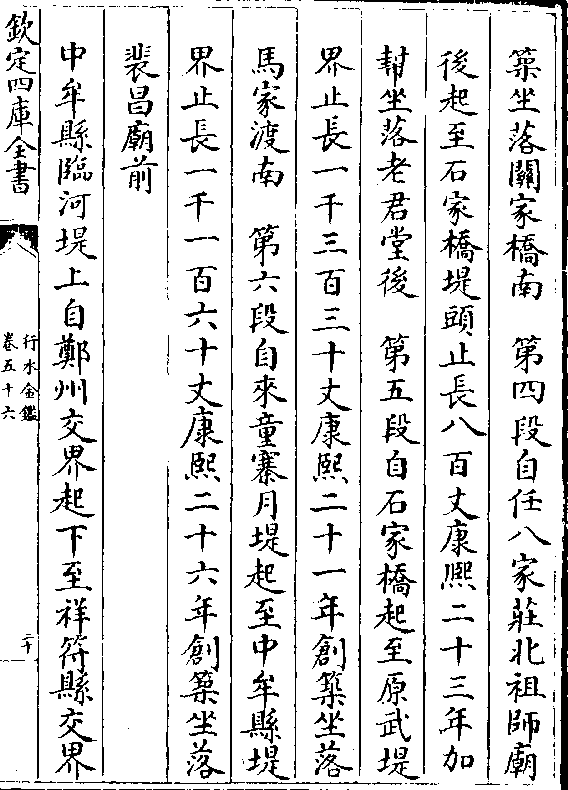 築坐落關家橋南　第四段自任八家莊北祖師廟
後起至石家橋堤頭止長八百丈康熙二十三年加
幇坐落老君堂後　第五段自石家橋起至原武堤
界止長一千三百三十丈康熙二十一年創築坐落
馬家渡南　第六段自來童寨月堤起至中牟縣堤
界止長一千一百六十丈康熙二十六年創築坐落
裴昌廟前
中牟縣臨河堤上自鄭州交界起下至祥符縣交界
欽定四庫全書
行水金鑑
卷五十六
二十